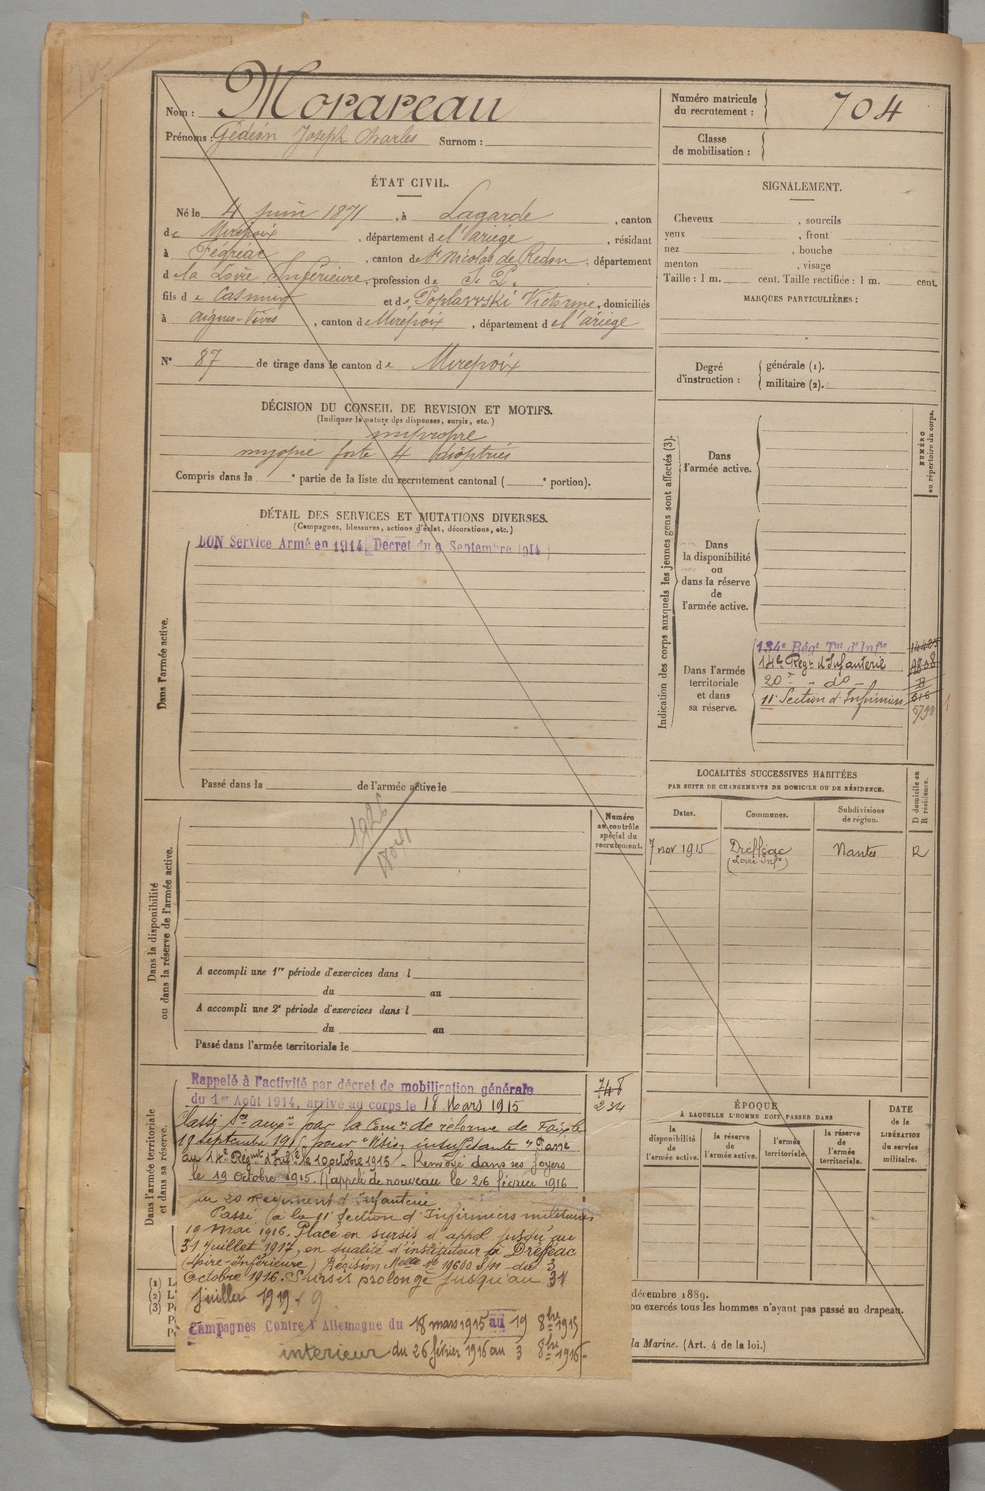 Nom : Morareau
Prénoms : Gédéon Joseph Charles Surnom :
Numéro matricule du recrutement : 704
Classe de mobilisation :
ÉTAT CIVIL.
Né le 4 juin 1871, à Lagarde, canton
de Mirepoix, département de l'Ariège, résidant
à Fégréac, canton de St Nicolas de Redon, département
d la Loire Inférieure, profession de
fils de Casimir et de Victorine, domiciliés
à Aigues-Vives, canton de Mirepoix, département de l'ariège
N° 87 de tirage dans le canton de Mirepoix
DÉCISION DU CONSEIL DE REVISION ET MOTIFS.
(Indiquer la nature des dispenses, sursis, etc.)
impropre
myopie forte 4 dioptries
Compris dans la e partie de la liste du recrutement cantonal ( e portion).
DÉTAIL DES SERVICES ET MUTATIONS DIVERSES.
(Campagnes, blessures, actions d'éclat, décorations, etc.)
BON Service Armé en 1914, Décret du 9 Septembre 1914
Dans l'armée active.
Passé dans la de l'armée active le
Dans la disponibilité
ou dans la réserve de l'armée active.
Numéro
au contrôle
spécial du
recrutement.
A accompli une 1re période d'exercices dans l
du au
A accompli une 2e période d'exercices dans l
du au
Passé dans l'armée territoriale le
Dans l'armée territoriale
et dans sa réserve.
Rappelé à l'activité par décret de mobilisation générale
du 1er Août 1914, arrivé au corps le 18 Mars 1915
748
234
Classé Sce auxre par la Comon de réforme de Foix le
19 septembre 1915 pour "Vision insuffisante" Passé
au 14e Régiment d'Infie le 10 octobre 1915 - Renvoyé dans ses foyers
le 19 octobre 1915. Rappelé de nouveau le 26 février 1916
au 20e Régiment d'Infanterie
Passé à la 11e Section d'Infirmiers militaires
19 mai 1916. Placé en sursis d'appel jusqu'au
31 juillet 1917, en qualité d'instituteur à Dréfféac
(Loire-Inférieure) Décision Melle No 19600 S/11 du 3
Octobre 1916. Sursis prolongé jusqu'au 31
juillet 1919
Campagnes Contre l'Allemagne du 18 mars 1915 au 19 8bre 1915
intérieur du 26 février 1916 au 3 8bre 1916
SIGNALEMENT.
Cheveux , sourcils
yeux , front
nez , bouche
menton , visage
Taille : 1 m. cent. Taille rectifiée : 1 m. cent.
MARQUES PARTICULIÈRES :
Degré d'instruction : générale (1).
militaire (2).
Indication des corps auxquels les jeunes gens sont affectés (3).
NUMÉRO
au répertoire du corps.
Dans
l'armée active.
Dans
la disponibilité
ou
dans la réserve
de
l'armée active.
Dans l'armée
territoriale
et dans
sa réserve.
134e Régt Tal d'Infie
14e Régt d'Infanterie
20e - do -
11e Section d'Infirmiers
LOCALITÉS SUCCESSIVES HABITÉES
PAR SUITE DE CHANGEMENTS DE DOMICILE OU DE RÉSIDENCE.
Dates. Communes. Subdivisions de région. D domicile ou R résidence.
7 nov 1915 Drefféac (Loire Infre) Nantes R
ÉPOQUE
À LAQUELLE L'HOMME DOIT PASSER DANS
la disponibilité de l'armée active. la réserve de l'armée active. l'armée territoriale. la réserve de l'armée territoriale.
DATE de la LIBÉRATION du service militaire.
décembre 1889.
on exercés tous les hommes n'ayant pas passé au drapeau.
la Marine. (Art. 4 de la loi.)